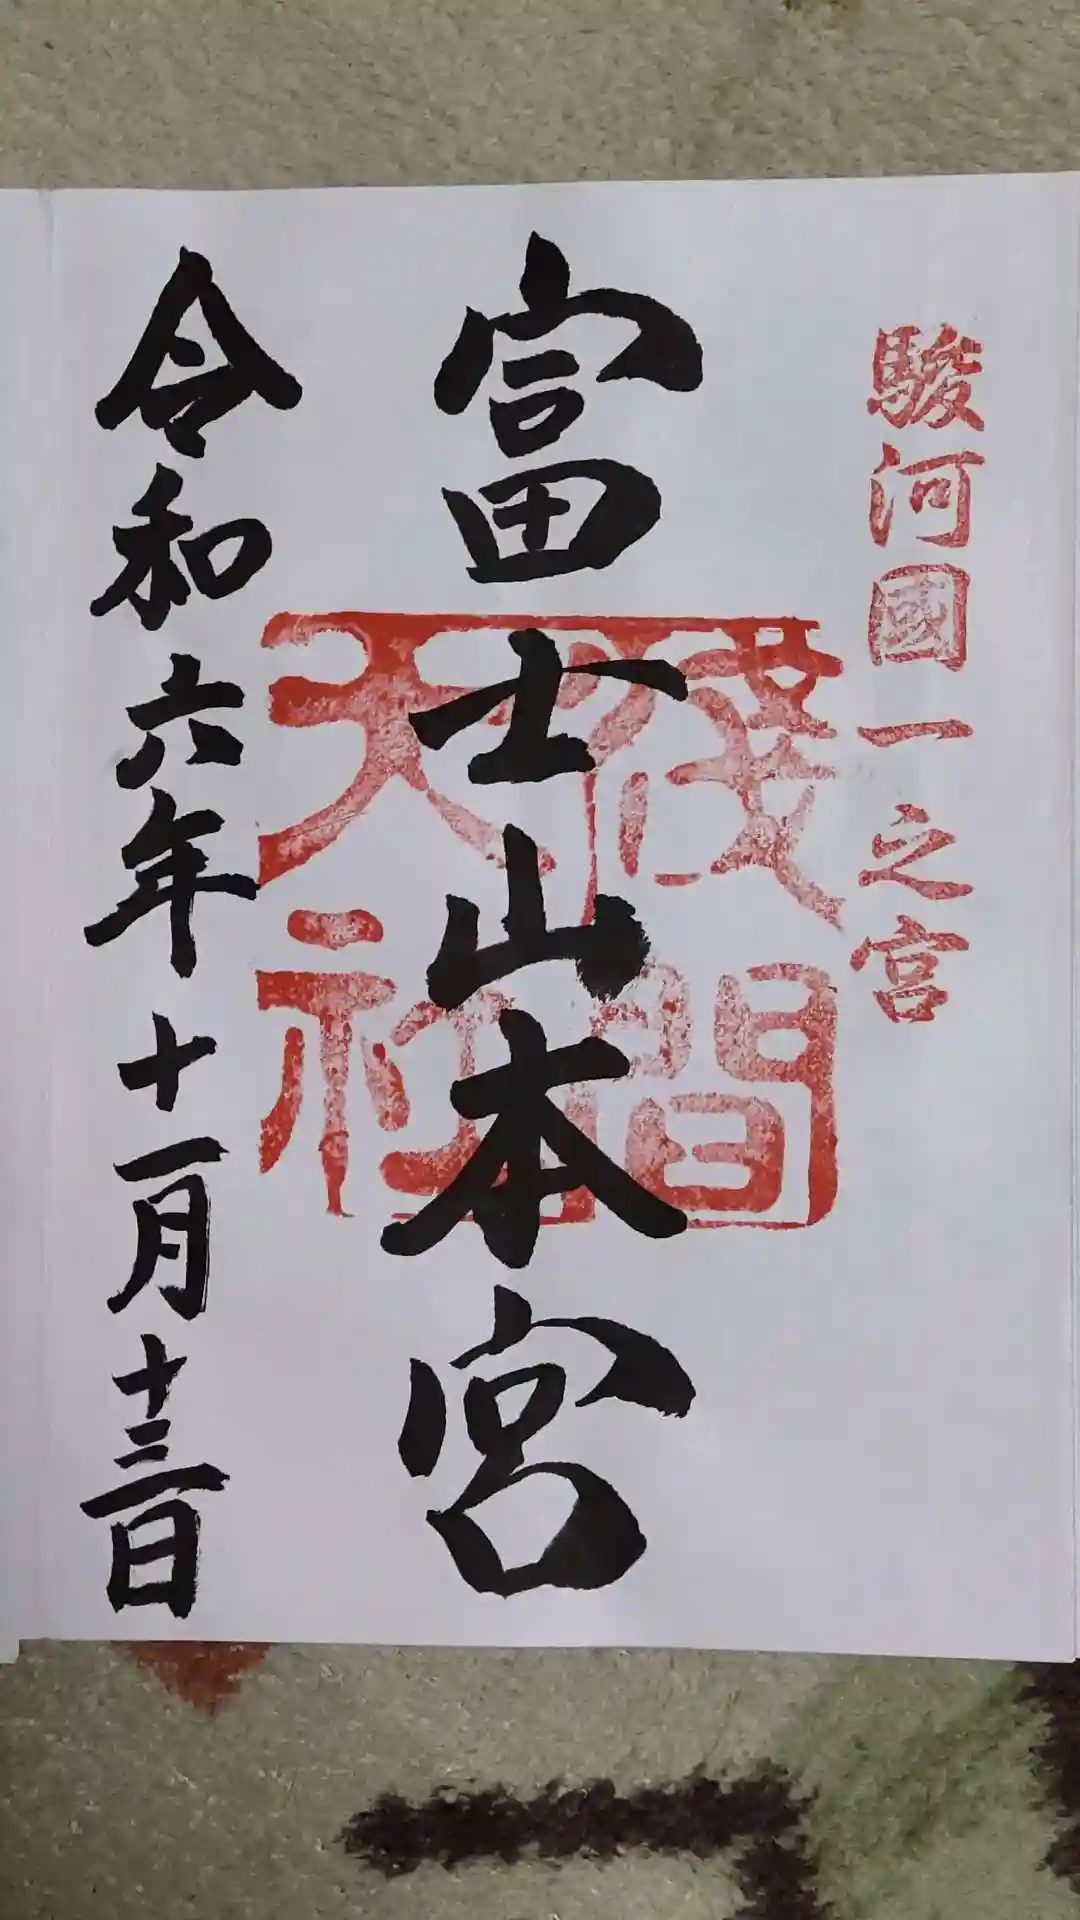 駿河國一之宮
富士山本宮
淺間大社
令和六年十一月十三日